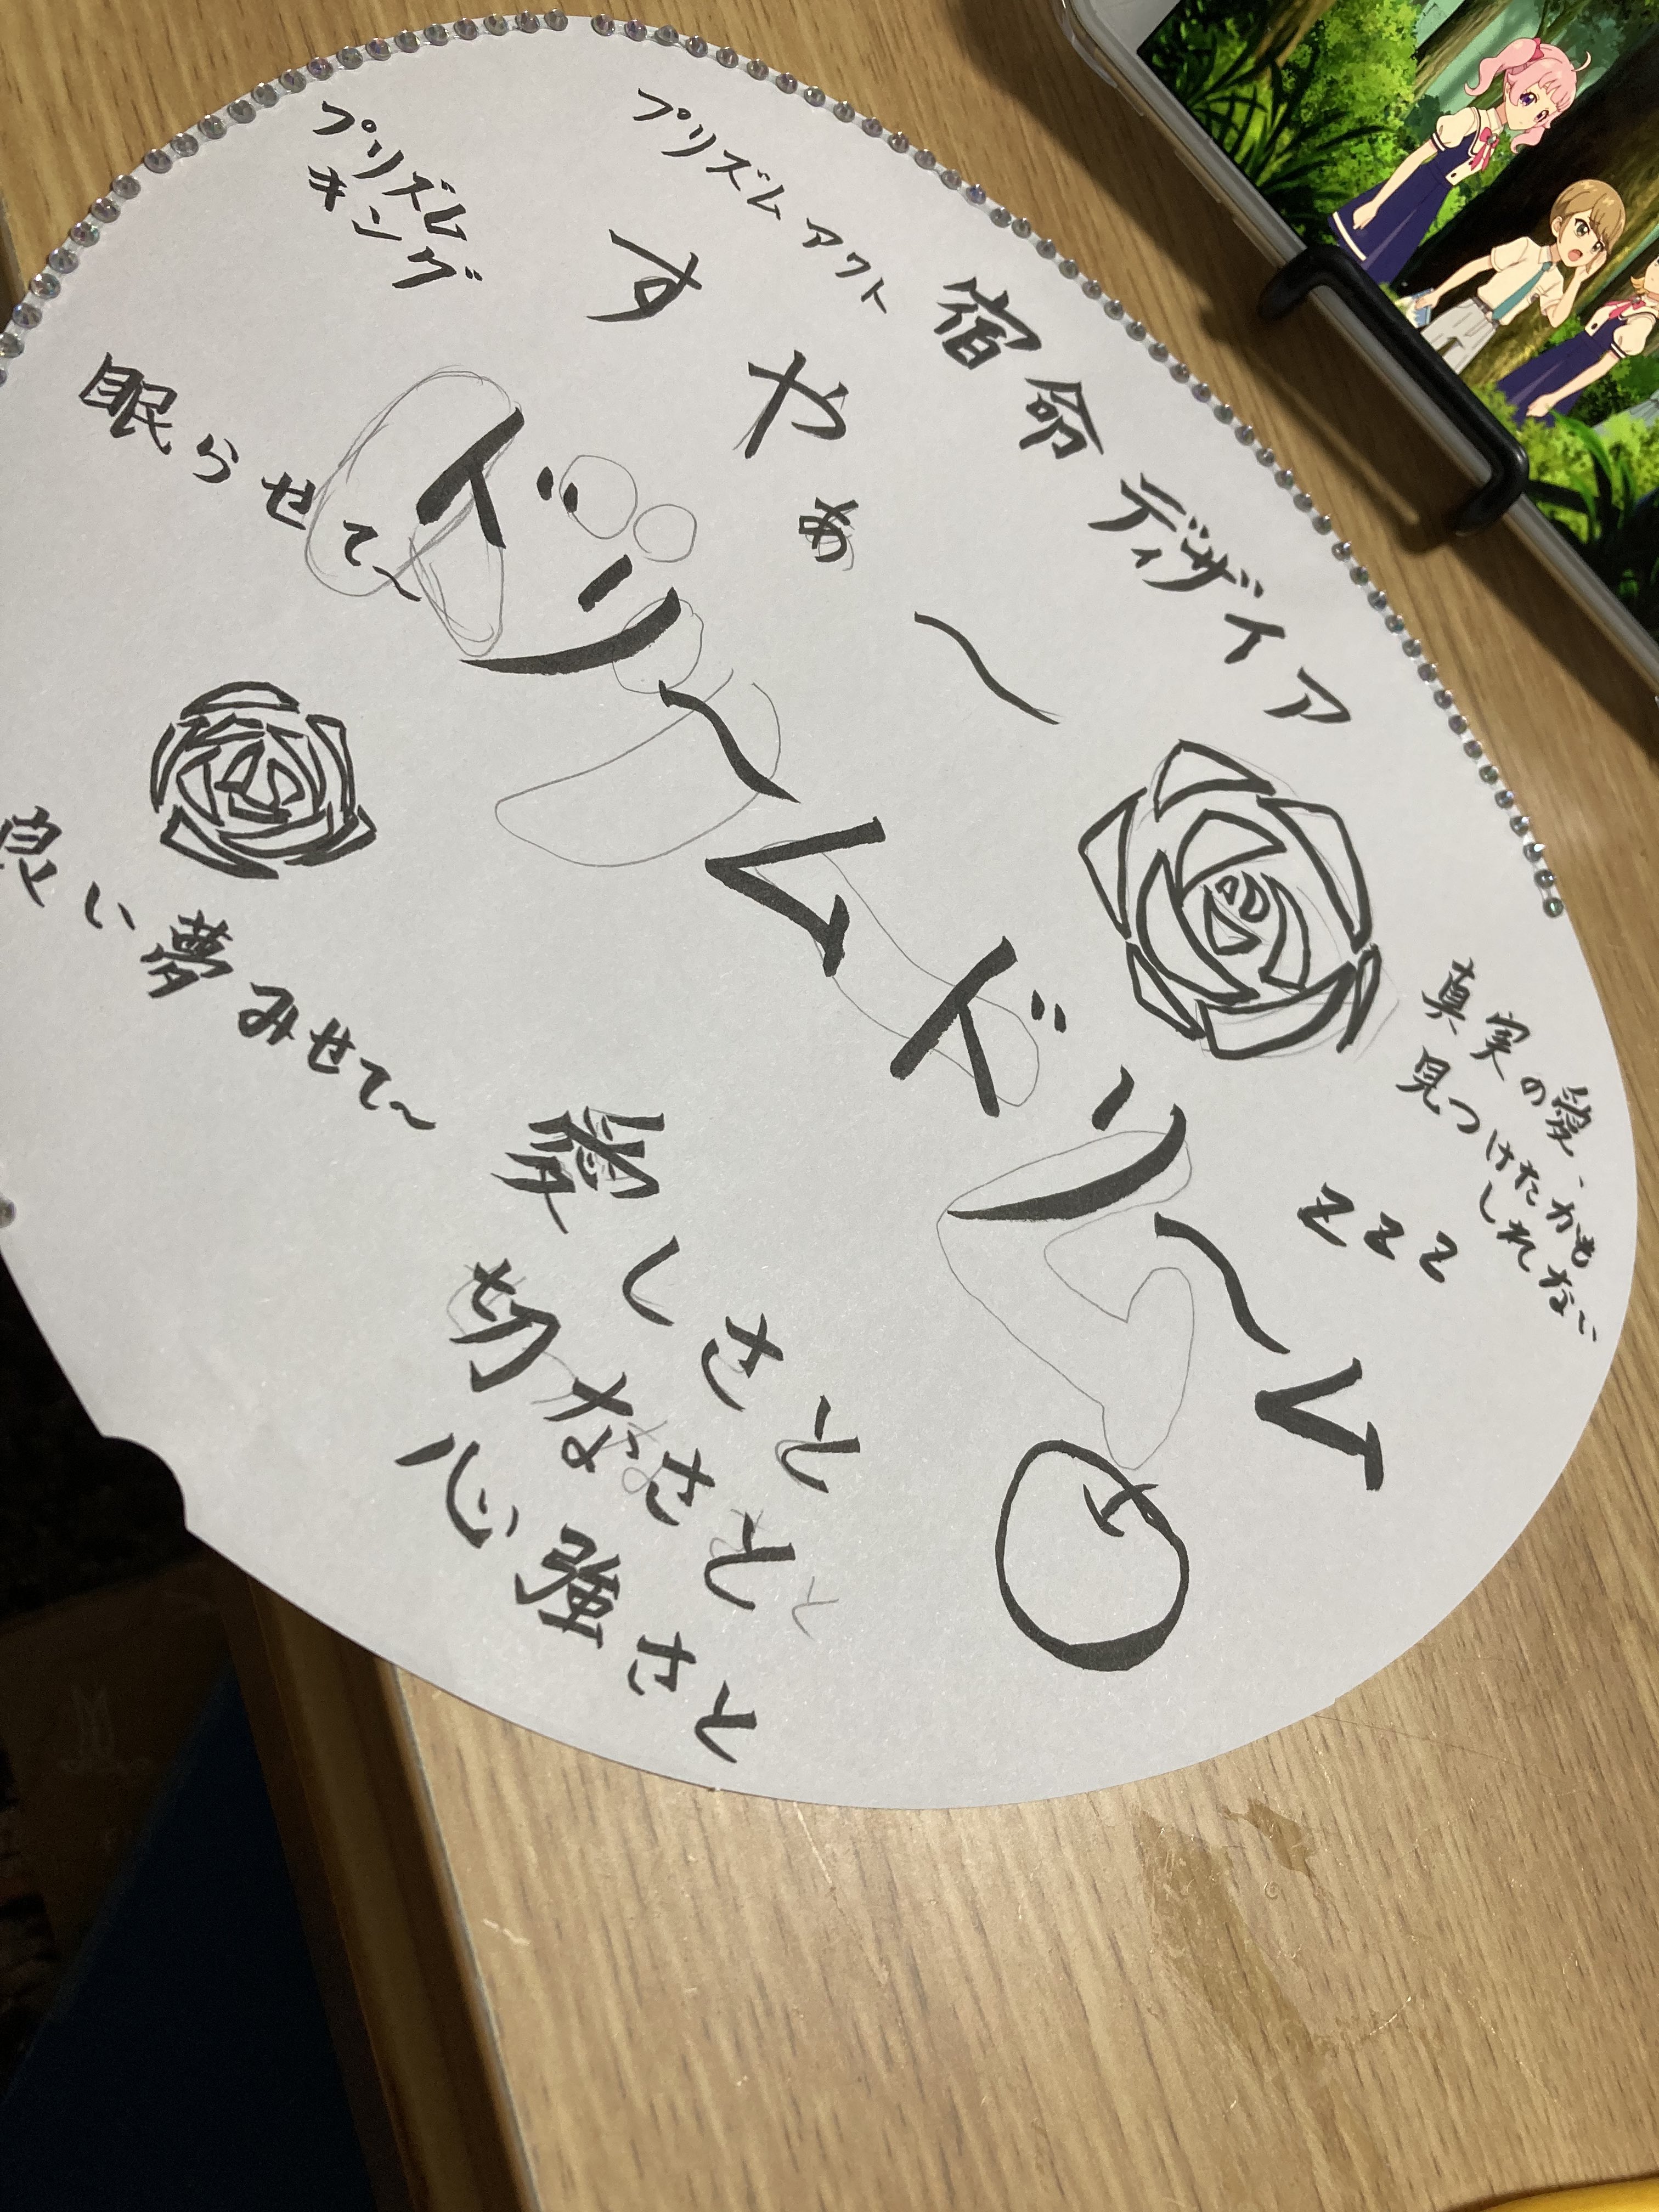 プリズム
キング
プリズムアウト
宿命ディザイア
すやぁ〜
眠らせて〜
ドリ〜ムドリ〜ム
真実の愛、
見つけたかも
しれない
zzz
良い夢みせて〜
愛しさと
切なさと
心強さと